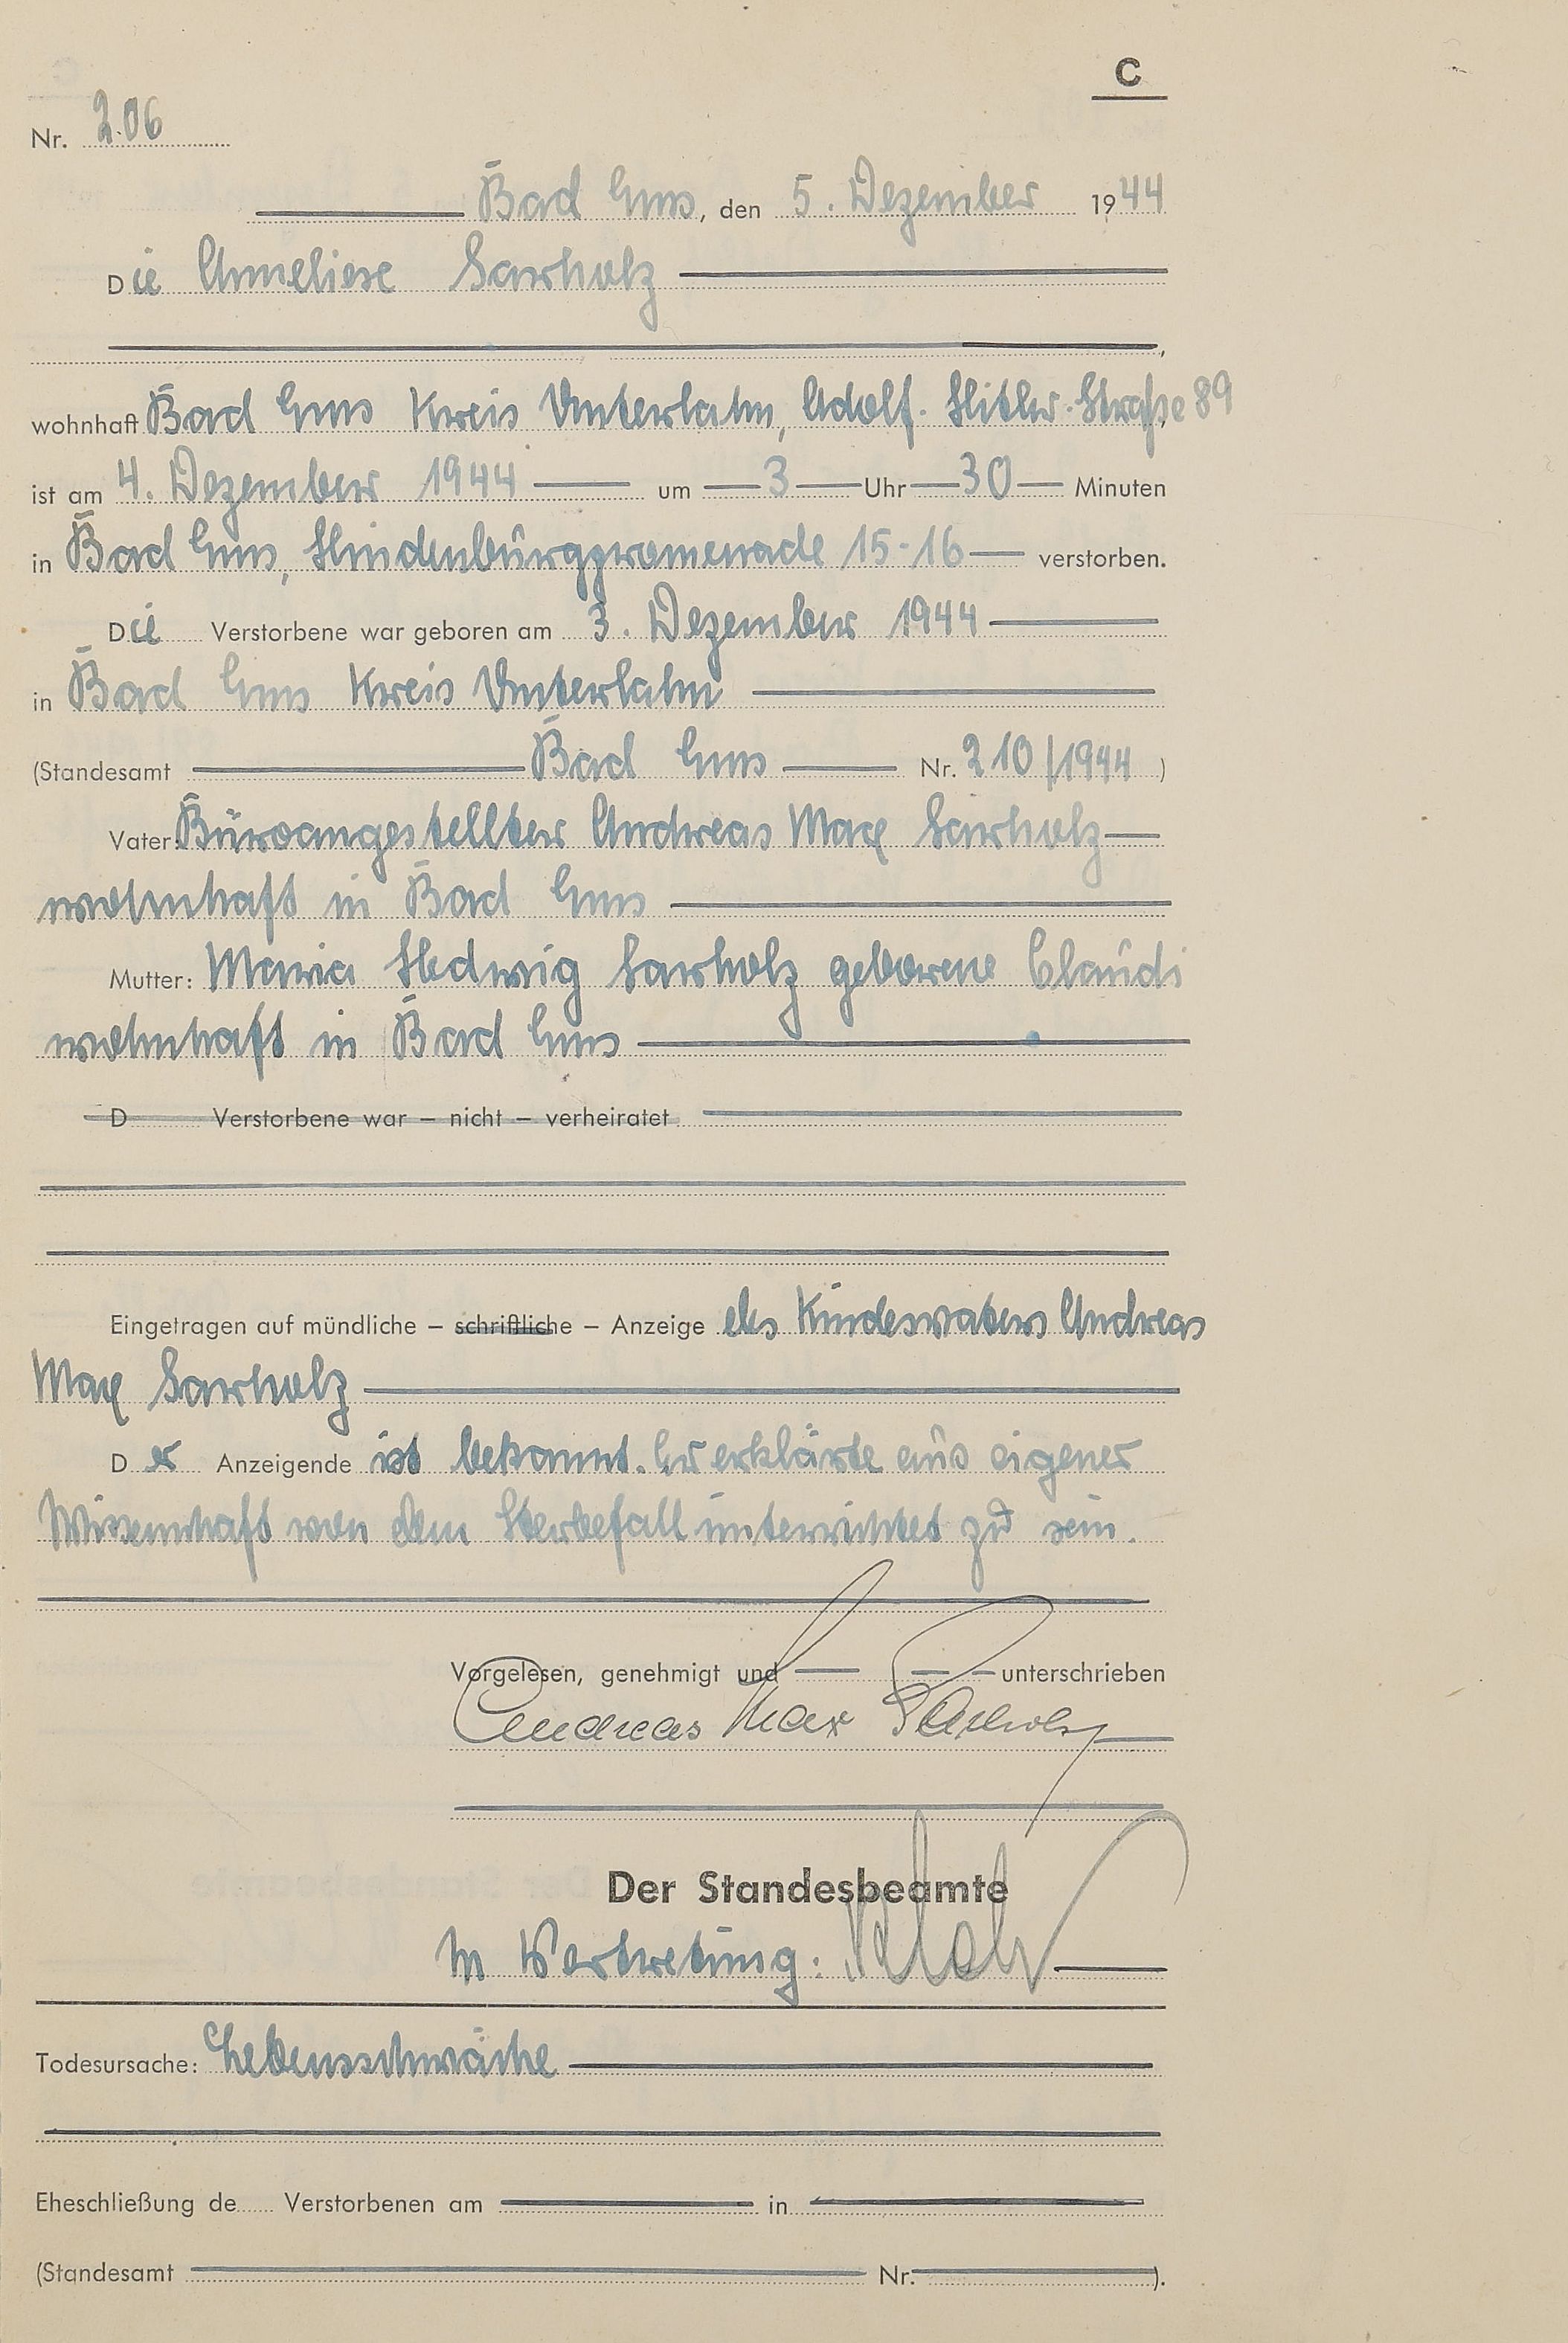 C
Nr. 206
Bad Ems, den 5. Dezember 1944
Die Anneliese Sarholz
wohnhaft Bad Ems Kreis Unterlahn, Adolf-Hitler-Straße 89
ist am 4. Dezember 1944 um 3 Uhr 30 Minuten
in Bad Ems, Hindenburgpromenade 15-16 verstorben.
Die Verstorbene war geboren am 3. Dezember 1944
in Bad Ems Kreis Unterlahn
(Standesamt Bad Ems Nr. 210/1944)
Vater: Büroangestellter Andreas Max Sarholz
wohnhaft in Bad Ems
Mutter: Maria Hedwig Sarholz geborene Claudi
wohnhaft in Bad Ems
D Verstorbene war – nicht – verheiratet
Eingetragen auf mündliche – schriftliche – Anzeige des Kindesvaters Andreas
Max Sarholz
Der Anzeigende ist bekannt. Er erklärte aus eigener
Wissenschaft von dem Sterbefall unterrichtet zu sein.
Vorgelesen, genehmigt und unterschrieben
Andreas Max Sarholz
Der Standesbeamte
In Vertretung:
Todesursache: Lebensschwäche
Eheschließung de Verstorbenen am in
(Standesamt Nr. ).